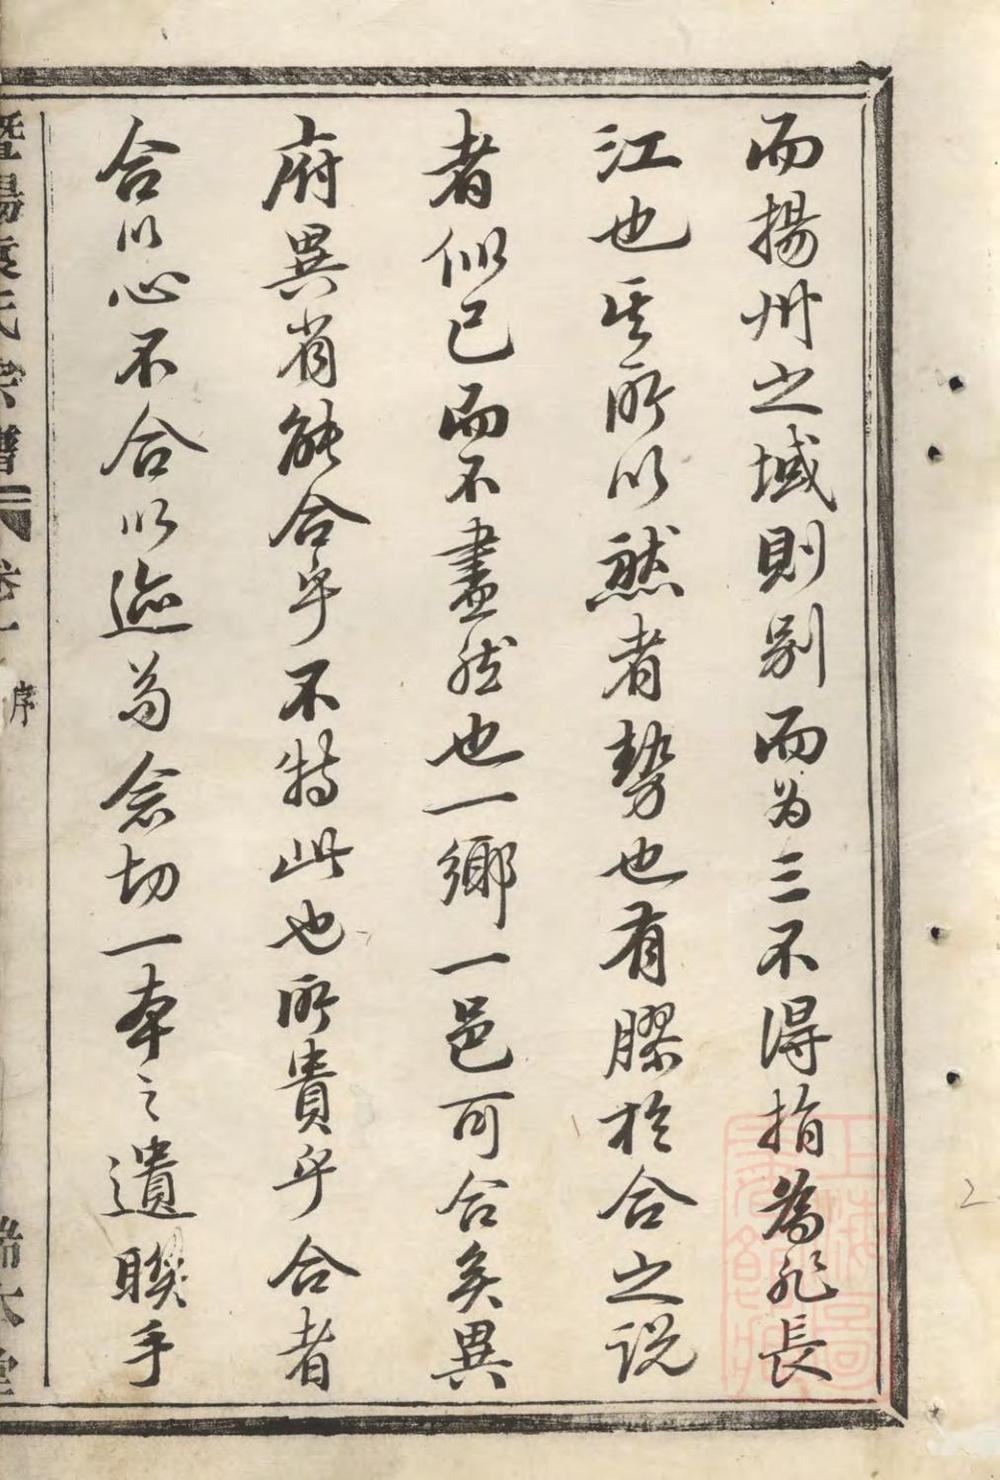 而揚州之域則別而为三不得指為非長
江也其所以然者勢也有膠於合之説
者似已而不盡然也一鄉一邑可合矣異
府異省能合乎不特此也所貴乎合者
合以心不合以迹苟念切一本之遺聯手
暨陽 氏宗譜 卷一 序